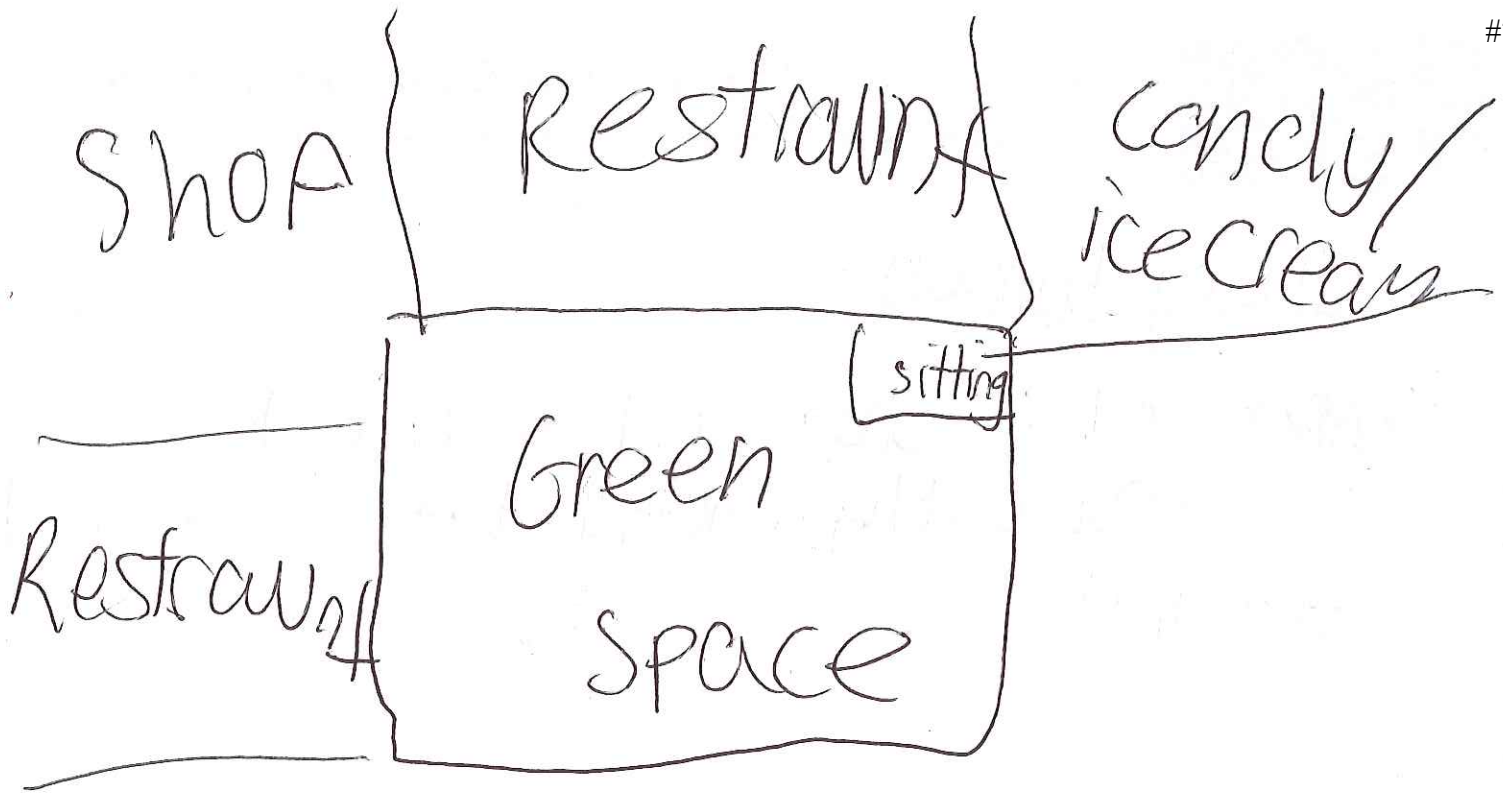 #
Shop
Restraunt
candy/
icecream
sitting
Green
Space
Restraunt